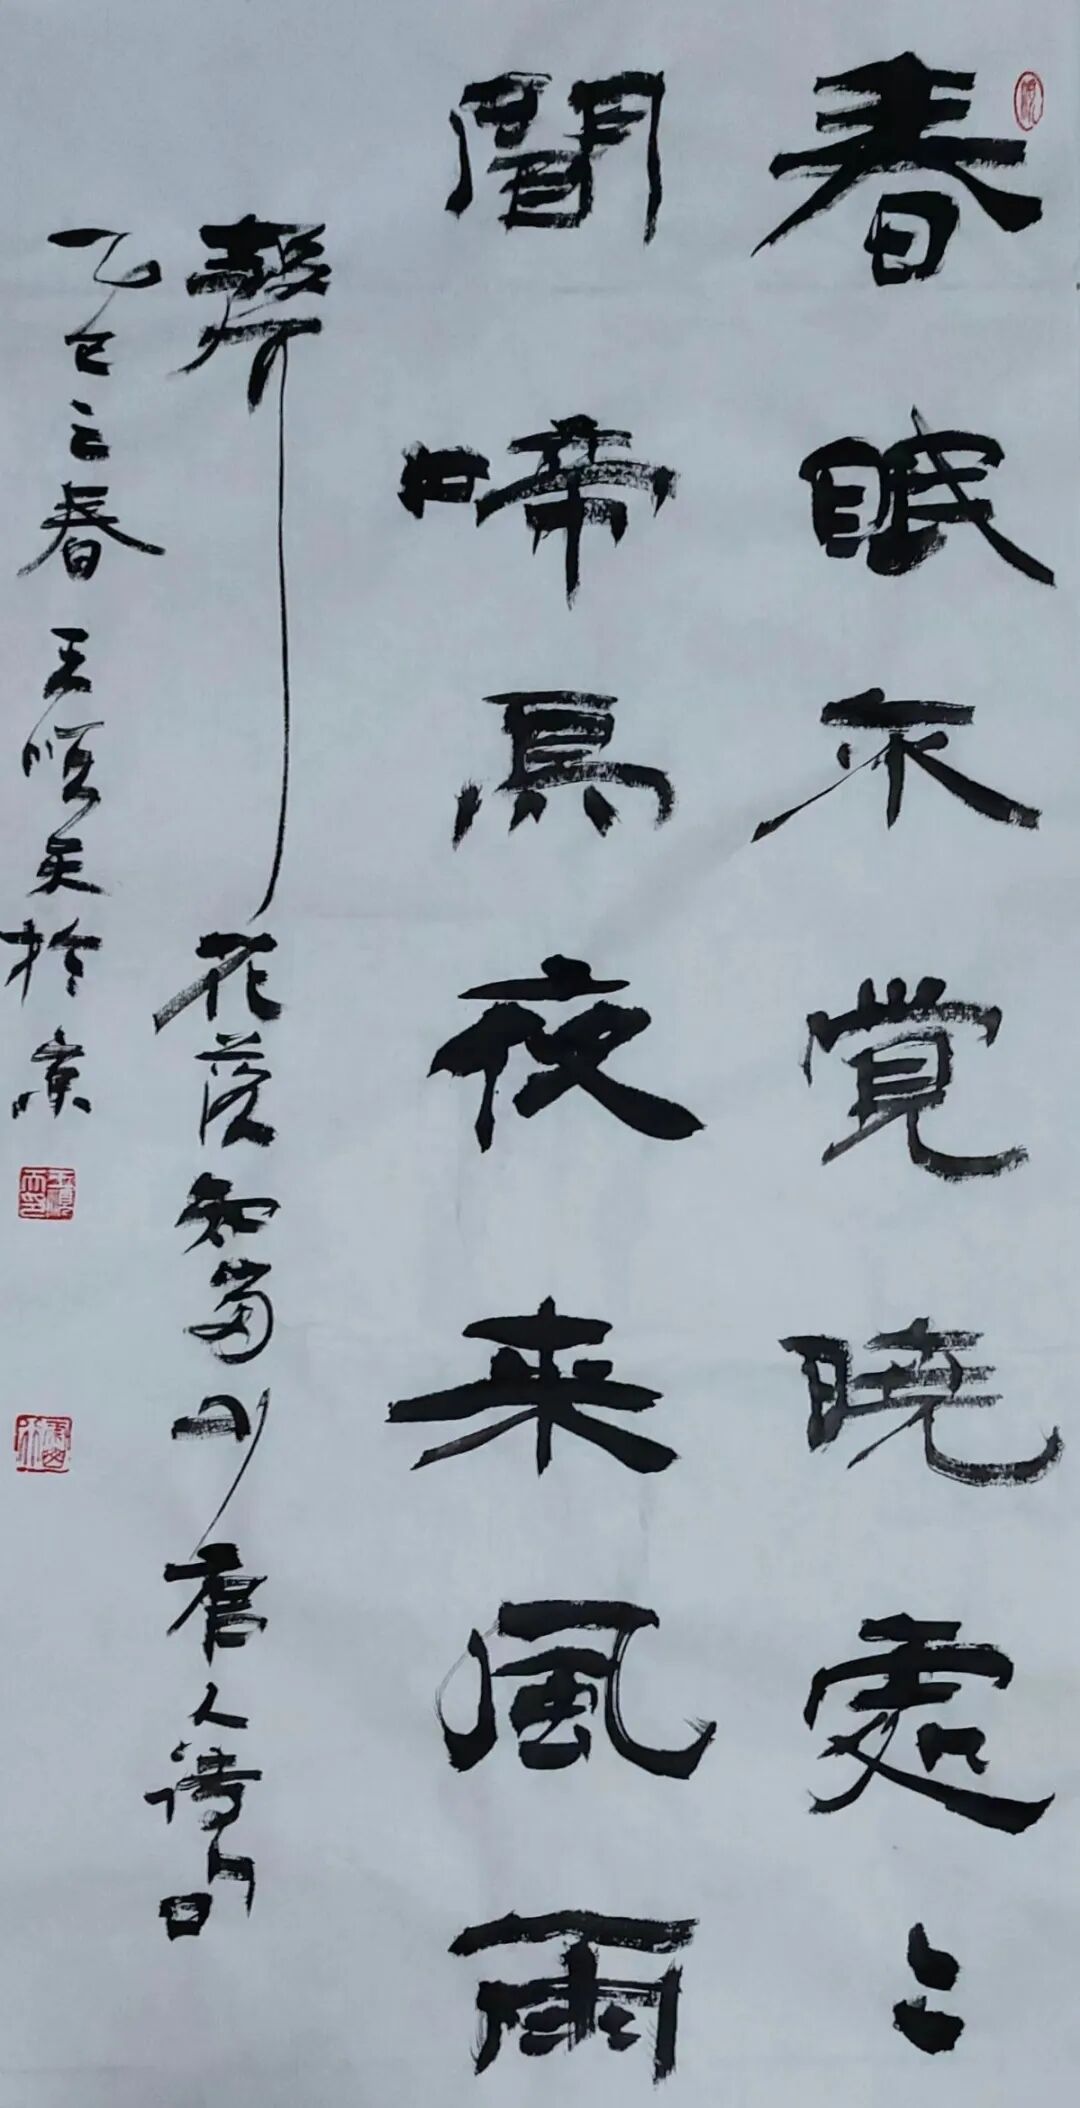 春眠不覺曉處〻
聞啼鳥夜来風雨
聲花落知多少唐人詩句
乙巳之春王順天於京